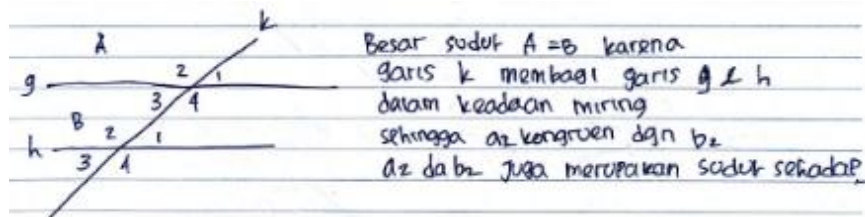 k
A
Besar sudut A = B karena
2 1
g
garis k membagi garis g & h
3 4
dalam keadaan miring
B 2 1
sehingga a2 kongruen dgn b2
h
3 4
a2 da b2 juga merupakan sudut sehadap